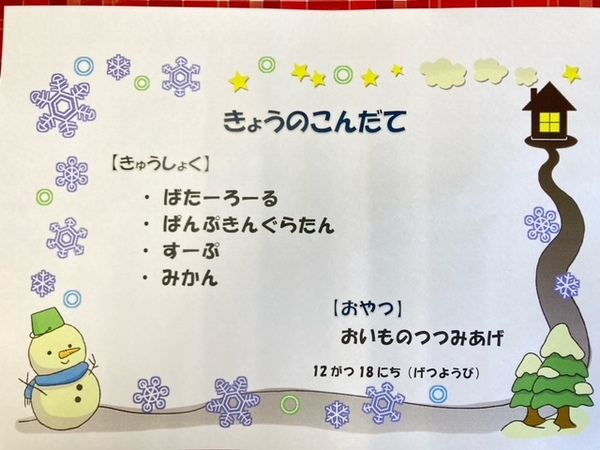 きょうのこんだて
【きゅうしょく】
・ ばたーろーる
・ ぱんぷきんぐらたん
・ すーぷ
・ みかん
【おやつ】
おいものつつみあげ
12がつ18にち（げつようび）